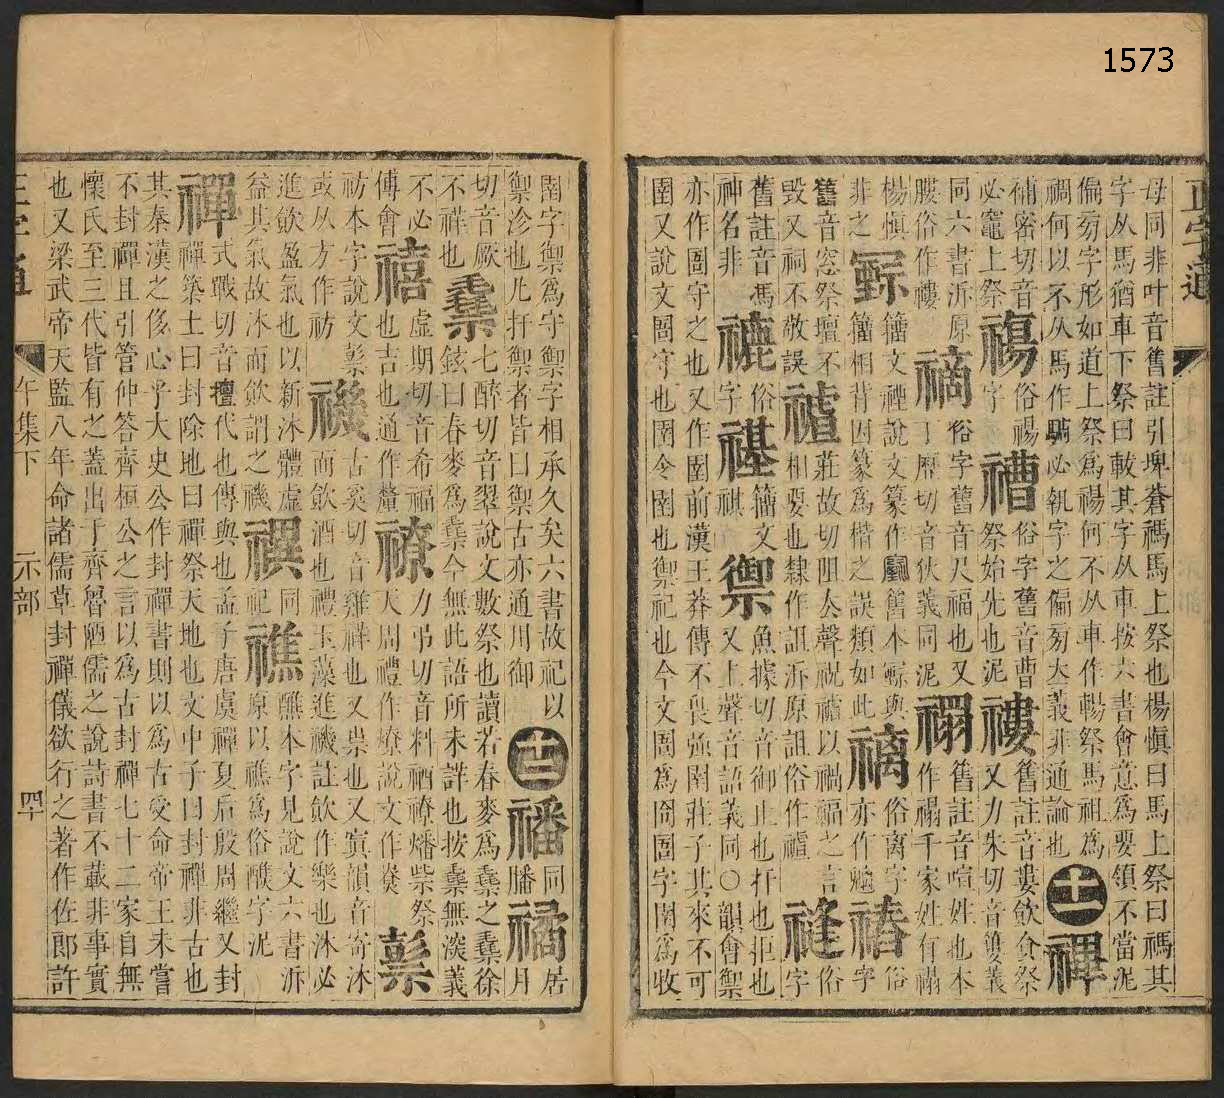 1573
正字通
母同非叶音舊註引埤蒼禡馬上祭也楊慎曰馬上祭曰禡其
字从馬猶車下祭曰軷其字从車按六書會意為要領不當泥
偏㫄字形如道上祭為禓何不从車作輰祭馬祖為
禂何以不从馬作必執字之偏㫄大義非通論也 十一 禈
補密切音必竈上祭 禓 俗禓字 𥛳 俗字舊音曹祭始先也泥 䄛 舊註音婁飲食祭又力朱切音義
同六書泝原腰俗作䄛 䄕 俗字舊音尺福也又丁歷切音狄義同泥 禤 舊註音喧姓也本作禤千家姓有禤
楊慎非之 籀文禋說文篆作舊本與籀相背因篆為楷之誤類如此 𥛚 俗离字亦作魑 䄝 俗字
舊音窓祭壇不毀又祠不敬誤 𥛜 莊故切阻去聲祝𥛜以禍福之言相要也隸作詛泝原詛俗作𥛜 䄝 俗字
舊註音馮神名非 俗字 禥 籀文祺 禦 魚據切音御止也扞也拒也又上聲音語義同〇韻會禦
亦作圄守之也又作圉前漢王莽傳不畏强圉莊子其來不可
圉又說文圄守也圉令圄也禦祀也今文圄為囹圄字圉為收
圉字禦為守禦字相承久矣六書故祀以
禦沴也凡扞禦者皆曰禦古亦通用御 十二 𥛮 同膰 𥛯 居月
切音厥不祥也 𣯍 七醉切音翠說文數祭也讀若春麥為𣯍之𣯍徐鉉曰春麥為𣯍今無此語所未詳也按𣯍無淡義
不必傅會 禧 虛期切音希福也吉也通作釐 𥛰 力弔切音料祡𥛰燔祡祭天周禮作燎說文作尞 𥛱
祊本字說文𥛱或从方作祊 禨 古奚切音雞祥也又祟也又寘韻音寄沐而飲酒也禮玉藻進禨註飲作樂也沐必
進飲盈氣也以新沐體虛益其氣故沐而飲謂之禨 禩 同祀 𥛲 醮本字見說文六書泝原以𥛲為俗醮字泥
禪 式戰切音繕代也傳與也孟子唐虞禪夏后殷周繼又封
禪築土曰封除地曰禪祭天地也文中子曰封禪非古也
其秦漢之侈心乎大史公作封禪書則以為古受命帝王未嘗
不封禪且引管仲答齊桓公之言以為古封禪七十二家自無
懷氏至三代皆有之蓋出于齊魯陋儒之說詩書不載非事實
也又梁武帝天監八年命諸儒草封禪儀欲行之著作佐郎許
正字通 午集下 示部 四十